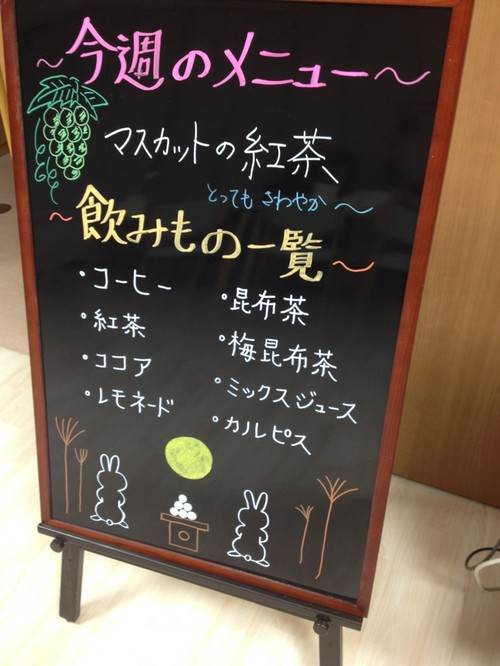 ～今週のメニュー～
マスカットの紅茶、
とっても さわやか～
～飲みもの一覧～
・コーヒー
・紅茶
・ココア
・レモネード
・昆布茶
・梅昆布茶
・ミックスジュース
・カルピス